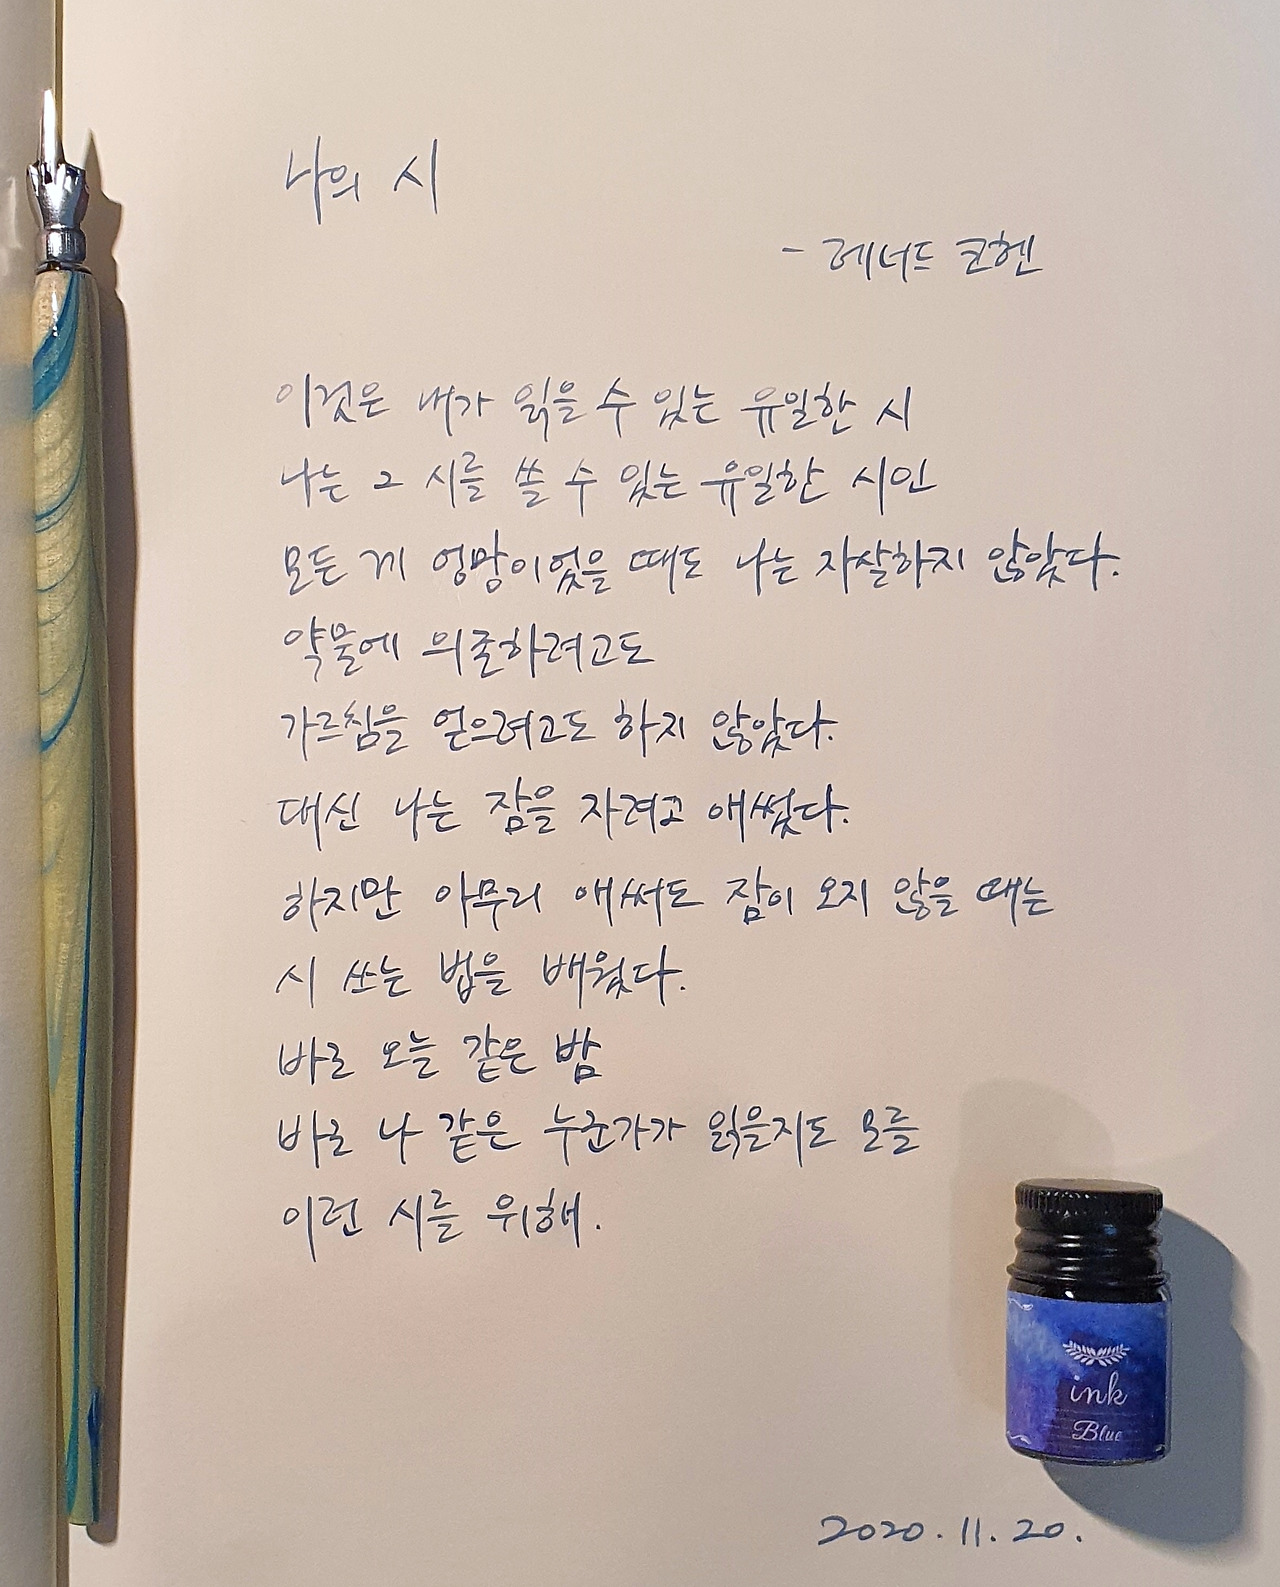 나의 시
- 레너드 코헨
이것은 내가 읽을 수 있는 유일한 시
나는 그 시를 쓸 수 있는 유일한 시인
모든 게 엉망이었을 때도 나는 자살하지 않았다.
약물에 의존하려고도
가르침을 얻으려고도 하지 않았다.
대신 나는 잠을 자려고 애썼다.
하지만 아무리 애써도 잠이 오지 않을 때는
시 쓰는 법을 배웠다.
바로 오늘 같은 밤
바로 나 같은 누군가가 읽을지도 모를
이런 시를 위해.
ink
Blue
2020.11.20.